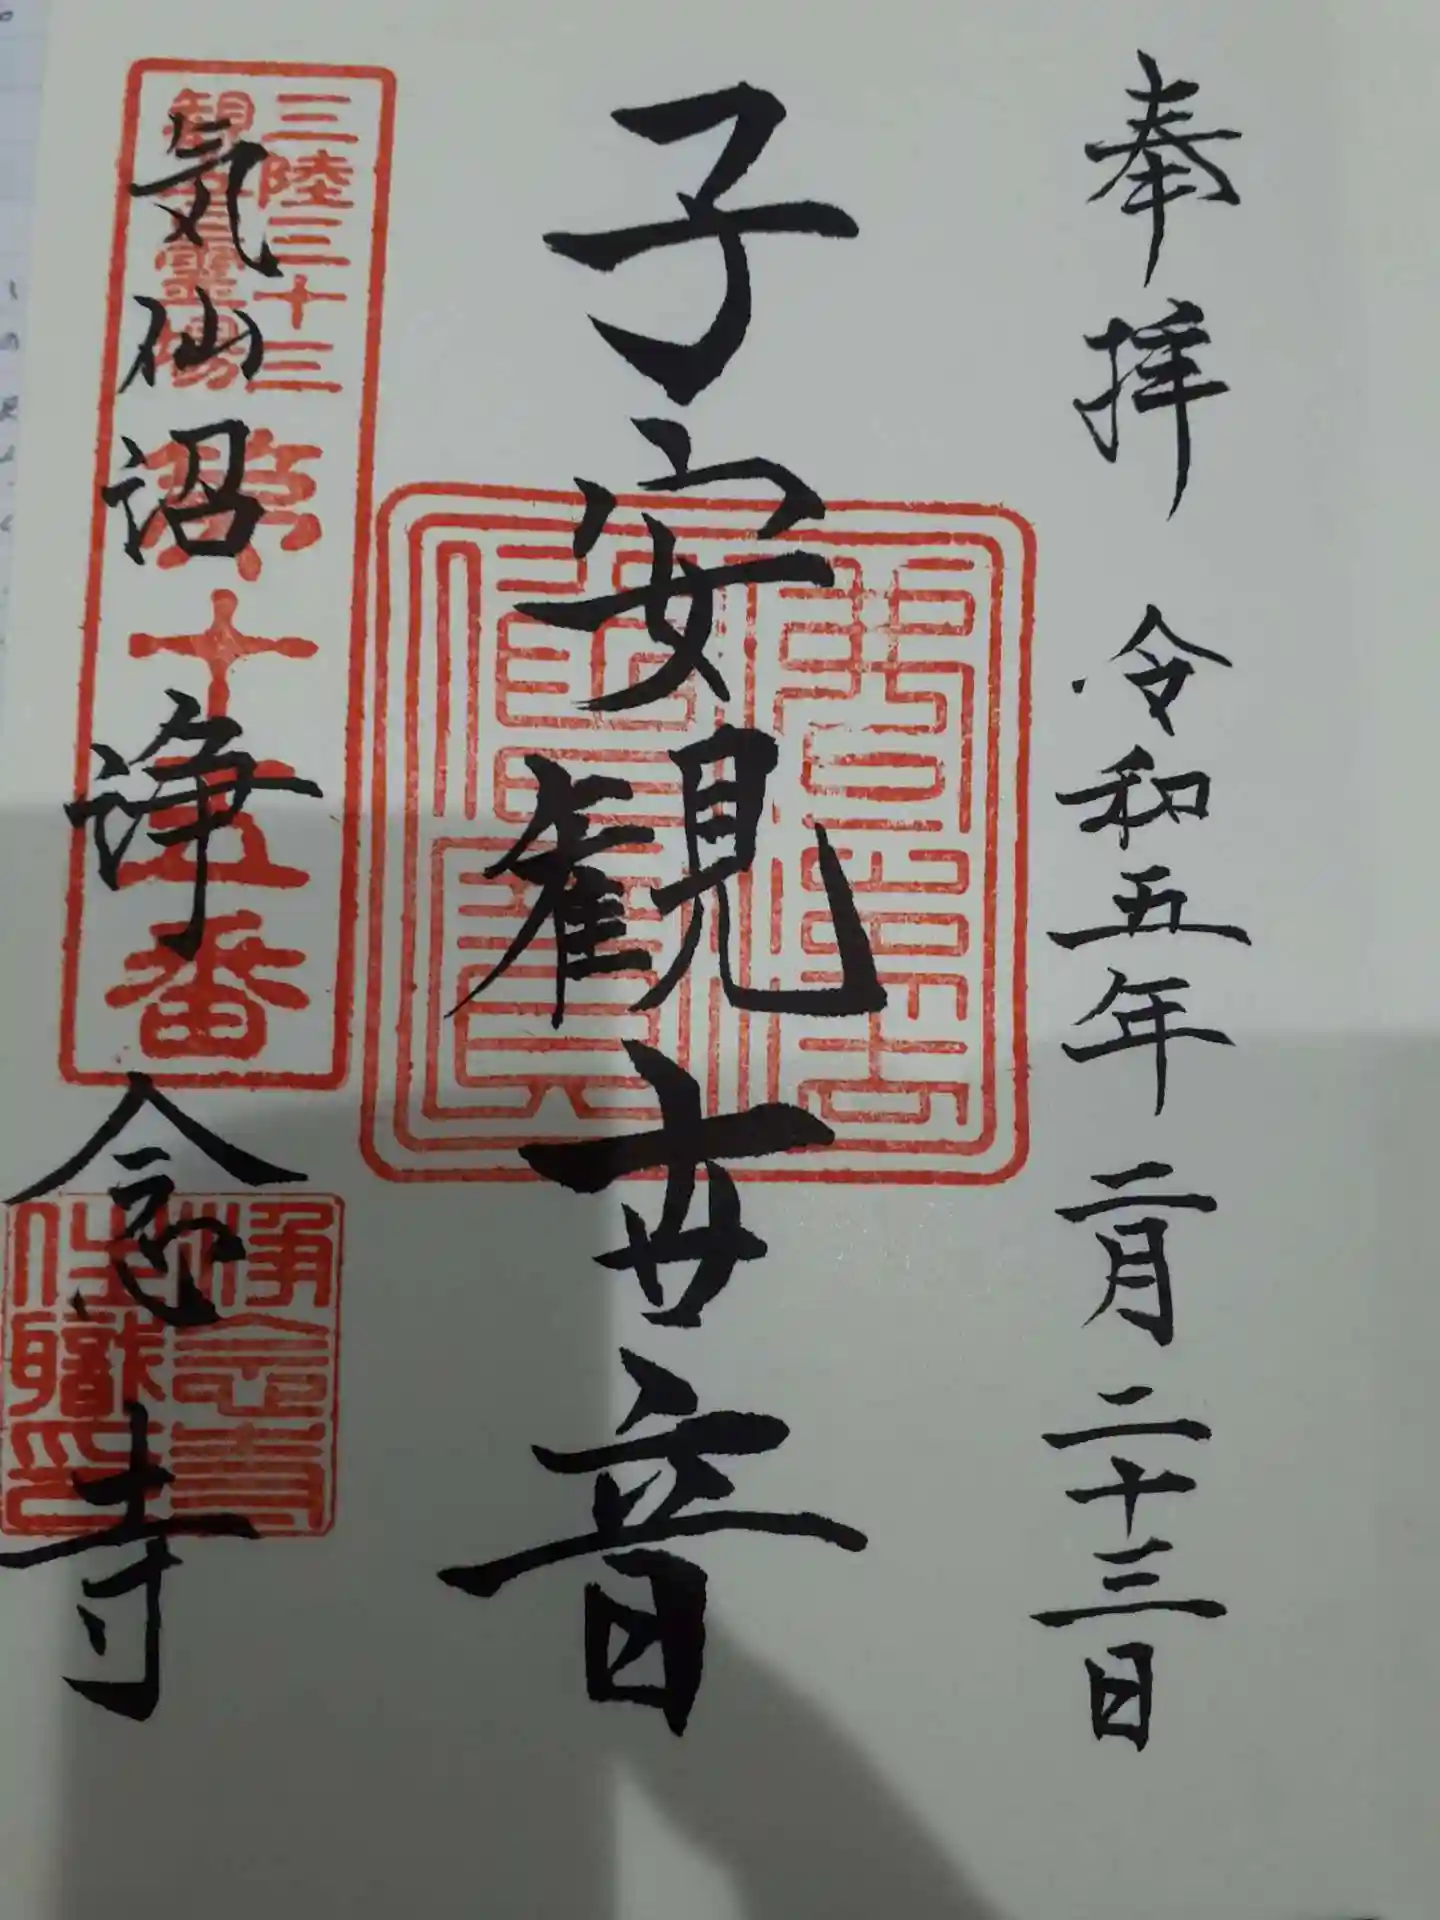 奉拝 令和五年二月二十三日
子安観世音
三陸三十三
観音霊場
第十五番
気仙沼 浄念寺
浄念寺
住職印